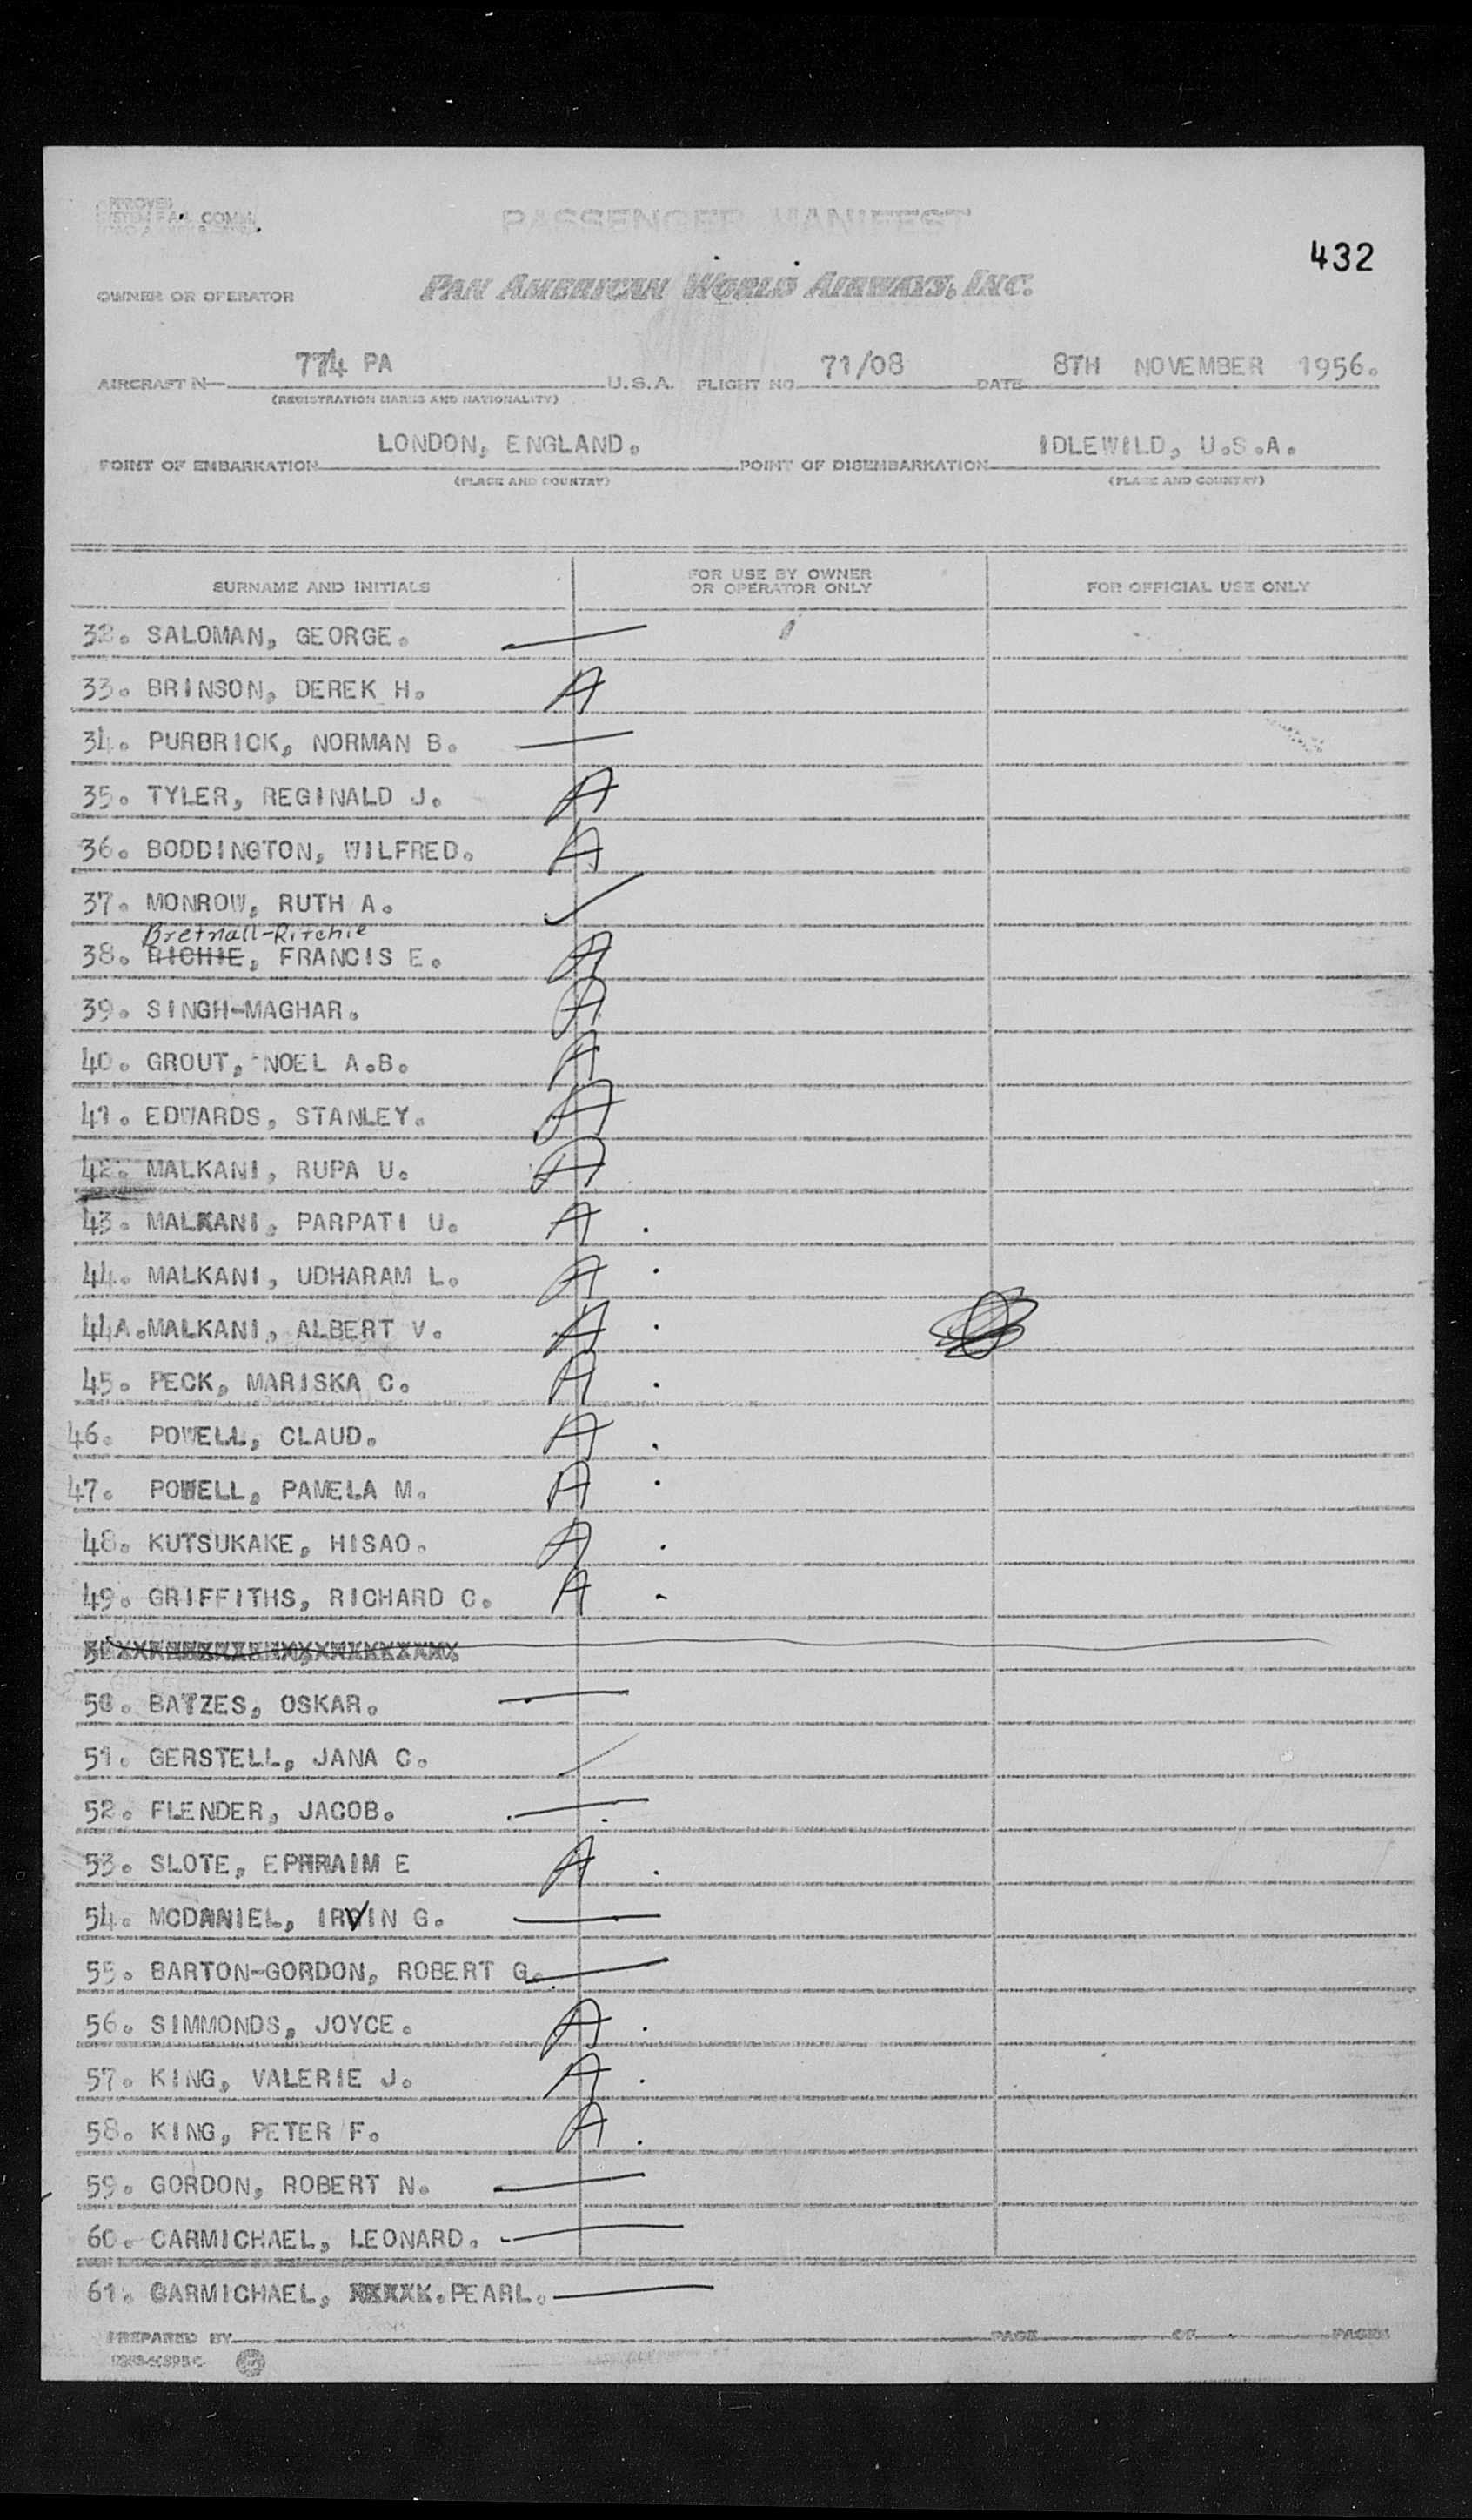 APPROVED
PASSENGER MANIFEST
432
OWNER OR OPERATOR PAN AMERICAN WORLD AIRWAYS, INC.
774 PA 71/08 8TH NOVEMBER 1956.
AIRCRAFT N U.S.A. FLIGHT NO. DATE
(REGISTRATION MARKS AND NATIONALITY)
LONDON, ENGLAND. IDLEWILD, U.S.A.
POINT OF EMBARKATION POINT OF DISEMBARKATION
(PLACE AND COUNTRY) (PLACE AND COUNTRY)
SURNAME AND INITIALS FOR USE BY OWNER OR OPERATOR ONLY FOR OFFICIAL USE ONLY
32. SALOMAN, GEORGE.
33. BRINSON, DEREK H. A
34. PURBRICK, NORMAN B.
35. TYLER, REGINALD J. A
36. BODDINGTON, WILFRED. A
37. MONROW, RUTH A.
Bretnall-Ritchie
38. RICHIE, FRANCIS E. A
39. SINGH-MAGHAR. A
40. GROUT, NOEL A.B. A
41. EDWARDS, STANLEY. A
42. MALKANI, RUPA U. A
43. MALKANI, PARPATI U. A
44. MALKANI, UDHARAM L. A
44A.MALKANI, ALBERT V. A
45. PECK, MARISKA C. A
46. POWELL, CLAUD. A
47. POWELL, PAMELA M. A
48. KUTSUKAKE, HISAO. A
49. GRIFFITHS, RICHARD C. A
50. BATZES, OSKAR.
51. GERSTELL, JANA C.
52. FLENDER, JACOB.
53. SLOTE, EPHRAIM E A
54. MCDANIEL, IRVIN G.
55. BARTON-GORDON, ROBERT G.
56. SIMMONDS, JOYCE. A
57. KING, VALERIE J. A
58. KING, PETER F. A
59. GORDON, ROBERT N.
60. CARMICHAEL, LEONARD.
61. CARMICHAEL, PEARL.
PREPARED BY PAGE OF PAGES